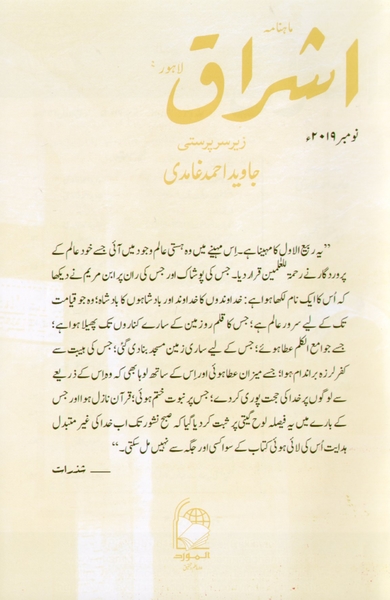 ماہنامہ
اشراق
لاہور
نومبر ۲۰۱۹ء
زیر سرپرستی
جاوید احمد غامدی
”یہ ربیع الاول کا مہینا ہے۔ اِس مہینے میں وہ ہستی عالم وجود میں آئی جسے خود عالم کے
پروردگار نے رحمۃ للعٰلمین قرار دیا۔ جس کی پوشاک اور جس کی ران پر ابن مریم نے دیکھا
کہ اُس کا ایک نام لکھا ہوا ہے: خداوندوں کا خداوند اور بادشاہوں کا بادشاہ؛ وہ جو قیامت
تک کے لیے سرور عالم ہے؛ جس کا قلم رو زمین کے سارے کناروں تک پھیلا ہوا ہے؛
جسے جوامع الکلم عطا ہوئے؛ جس کے لیے ساری زمین مسجد بنا دی گئی؛ جس کی ہیبت سے
کفر لرزہ براندام ہوا؛ جسے میزان عطا ہوئی اور اِس کے ساتھ لوہا بھی کہ وہ اِس کے ذریعے
سے لوگوں پر خدا کی حجت پوری کر دے؛ جس پر نبوت ختم ہوئی؛ قرآن نازل ہوا اور جس
کے بارے میں یہ فیصلہ لوح گیتی پر ثبت کر دیا گیا کہ صبح نشور تک اب خدا کی غیر متبدل
ہدایت اُس کی لائی ہوئی کتاب کے سوا کسی اور جگہ سے نہیں مل سکتی۔“
—— شذرات
المورد